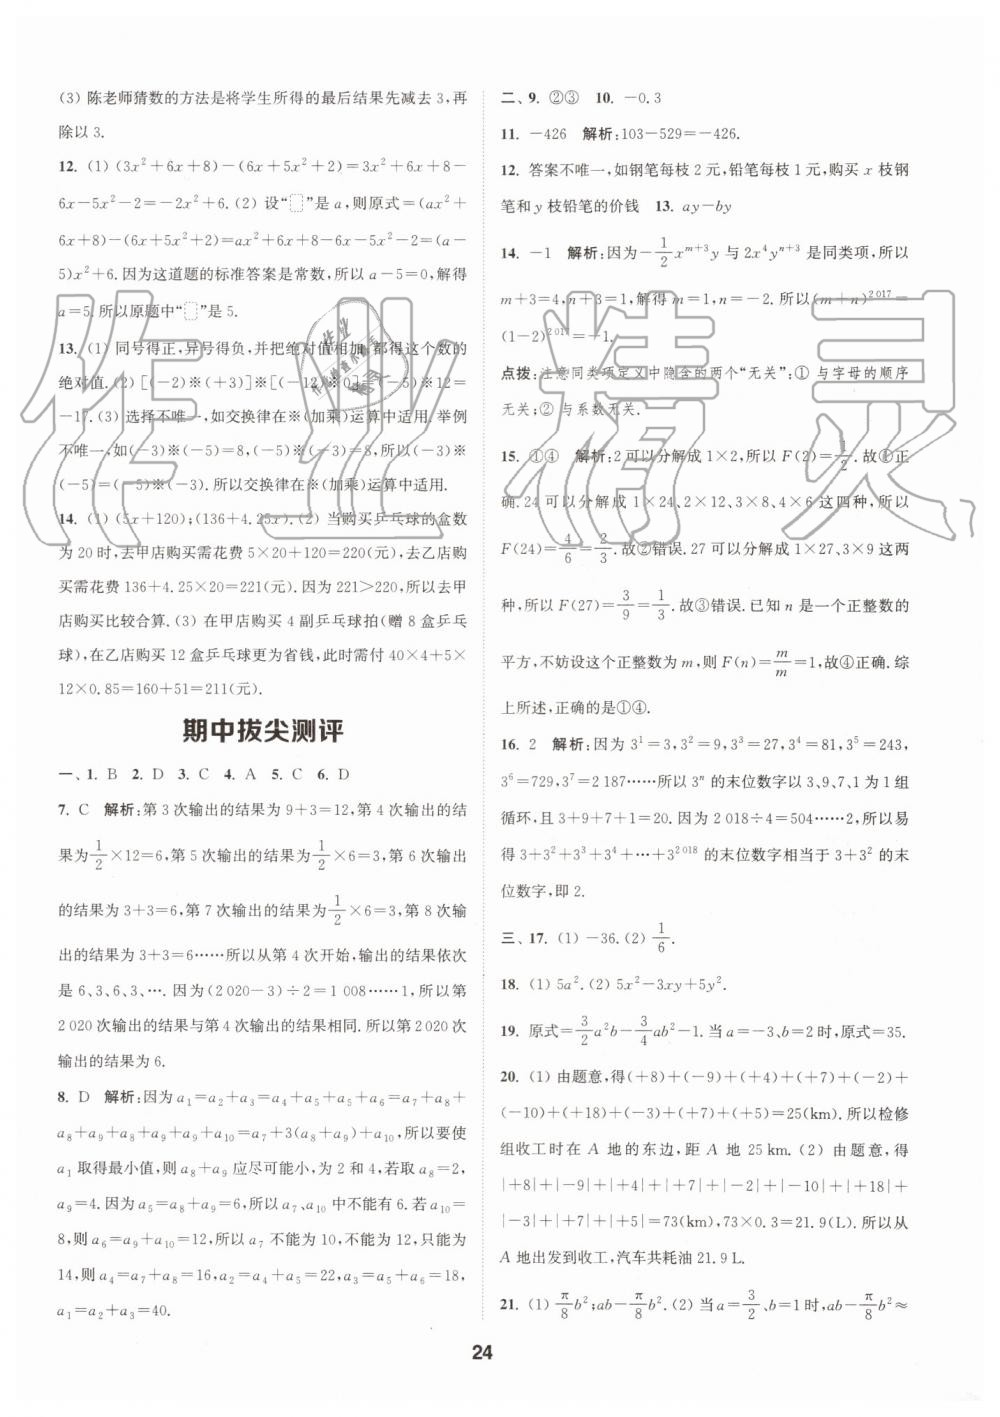 (3) 陈老师猜数的方法是将学生所得的最后结果先减去 3,再
除以 3.
12. (1) (3x²+6x+8)-(6x+5x²+2)=3x²+6x+8-
6x-5x²-2=-2x²+6. (2) 设“□”是 a,则原式=(ax²+
6x+8)-(6x+5x²+2)=ax²+6x+8-6x-5x²-2=(a-
5)x²+6. 因为这道题的标准答案是常数,所以 a-5=0,解得
a=5. 所以原题中“□”是 5.
13. (1) 同号得正,异号得负,并把绝对值相加 都得这个数的
绝对值. (2) [(-2)※(+3)]※[(-12)※0]=(-5)※12=
-17. (3) 选择不唯一,如交换律在※(加乘)运算中适用. 举例
不唯一,如(-3)※(-5)=8,(-5)※(-3)=8,所以(-3)※
(-5)=(-5)※(-3). 所以交换律在※(加乘)运算中适用.
14. (1) (5x+120);(136+4.25x). (2) 当购买乒乓球的盒数
为 20 时,去甲店购买需花费 5×20+120=220(元),去乙店购
买需花费 136+4.25×20=221(元). 因为 221>220,所以去甲
店购买比较合算. (3) 在甲店购买 4 副乒乓球拍(赠 8 盒乒乓
球),在乙店购买 12 盒乒乓球更为省钱,此时需付 40×4+5×
12×0.85=160+51=211(元).
期中拔尖测评
一、1. B 2. D 3. C 4. A 5. C 6. D
7. C 解析:第 3 次输出的结果为 9+3=12,第 4 次输出的结
果为1/2×12=6,第 5 次输出的结果为1/2×6=3,第 6 次输出
的结果为 3+3=6,第 7 次输出的结果为1/2×6=3,第 8 次输
出的结果为 3+3=6……所以从第 4 次开始,输出的结果依次
是 6、3、6、3、…. 因为(2 020-3)÷2=1 008……1,所以第
2 020次输出的结果与第 4 次输出的结果相同. 所以第 2 020次
输出的结果为 6.
8. D 解析:因为 a₁=a₂+a₃=a₄+a₅+a₅+a₆=a₇+a₈+
a₈+a₉+a₈+a₉+a₉+a₁₀=a₇+3(a₈+a₉)+a₁₀,所以要使
a₁ 取得最小值,则 a₈+a₉ 应尽可能小,为 2 和 4,若取 a₈=2,
a₉=4. 因为 a₅=a₈+a₉=6,所以 a₇、a₁₀ 中不能有 6. 若 a₁₀=
8,则 a₆=a₉+a₁₀=12,所以 a₇ 不能为 10,不能为 12,只能为
14,则 a₄=a₇+a₈=16,a₂=a₄+a₅=22,a₃=a₅+a₆=18,
a₁=a₂+a₃=40.
二、9. ②③ 10. -0.3
11. -426 解析:103-529=-426.
12. 答案不唯一,如钢笔每枝 2 元,铅笔每枝 1 元,购买 x 枝钢
笔和 y 枝铅笔的价钱 13. ay-by
14. -1 解析:因为-1/2x^(m+3)y 与 2x⁴y^(n+3) 是同类项,所以
m+3=4,n+3=1,解得 m=1,n=-2. 所以(m+n)²⁰¹⁷=
(1-2)²⁰¹⁷=-1.
点拨:注意同类项定义中隐含的两个“无关”:① 与字母的顺序
无关;② 与系数无关.
15. ①④ 解析:2可以分解成 1×2,所以 F(2)=1/2. 故①正
确. 24 可以分解成 1×24、2×12、3×8、4×6 这四种,所以
F(24)=4/6=2/3. 故②错误. 27 可以分解成 1×27、3×9 这两
种,所以 F(27)=3/9=1/3. 故③错误. 已知 n 是一个正整数的
平方,不妨设这个正整数为 m,则 F(n)=m/m=1,故④正确. 综
上所述,正确的是①④.
16. 2 解析:因为 3¹=3,3²=9,3³=27,3⁴=81,3⁵=243,
3⁶=729,3⁷=2 187……所以 3ⁿ 的末位数字以 3、9、7、1 为 1 组
循环,且 3+9+7+1=20. 因为 2 018÷4=504……2,所以易
得 3+3²+3³+3⁴+…+3²⁰¹⁸ 的末位数字相当于 3+3² 的末
位数字,即 2.
三、17. (1) -36. (2) 1/6.
18. (1) 5a². (2) 5x²-3xy+5y².
19. 原式=3/2a²b-3/4ab²-1. 当 a=-3、b=2 时,原式=35.
20. (1) 由题意,得(+8)+(-9)+(+4)+(+7)+(-2)+
(-10)+(+18)+(-3)+(+7)+(+5)=25(km). 所以检修
组收工时在 A 地的东边,距 A 地 25 km. (2) 由题意,得
|+8|+|-9|+|+4|+|+7|+|-2|+|-10|+|+18|+
|-3|+|+7|+|+5|=73(km),73×0.3=21.9(L). 所以从
A 地出发到收工,汽车共耗油 21.9 L.
21. (1) π/8b²;ab-π/8b². (2) 当 a=3/2、b=1 时,ab-π/8b²≈
24
作业精灵